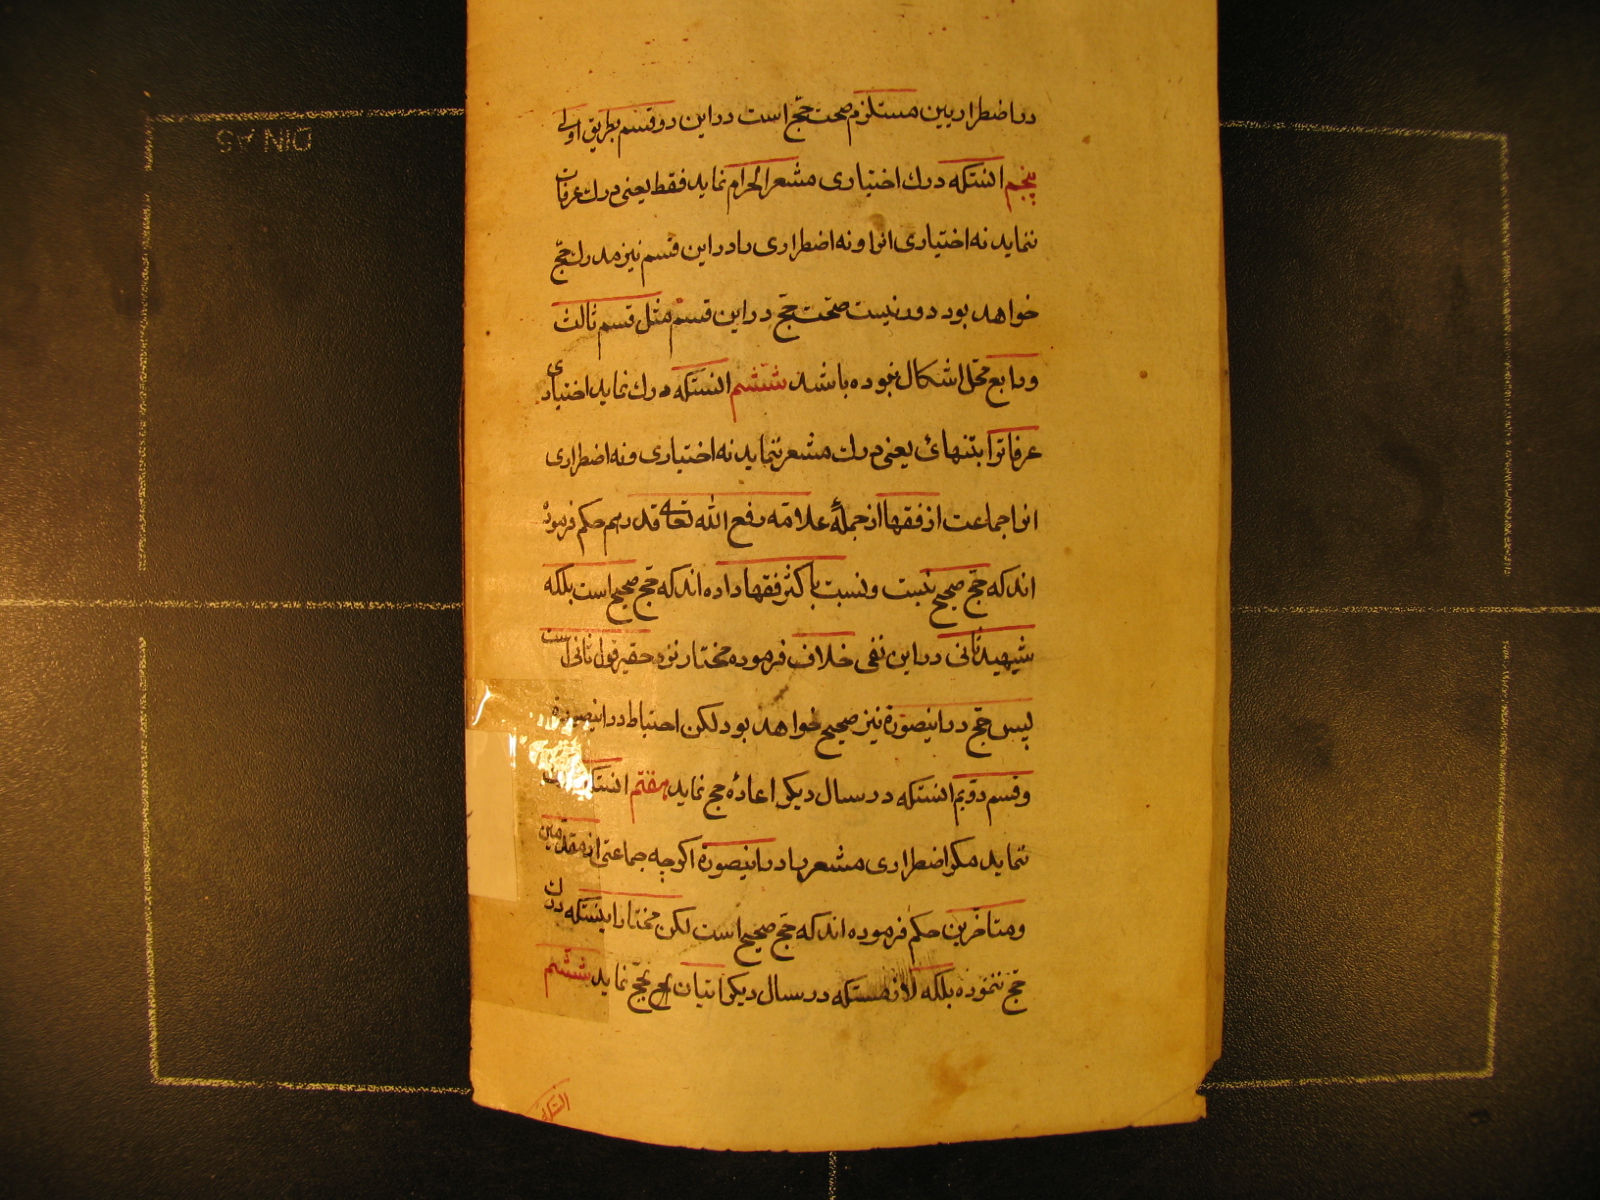 در اضطراریین مستلزم صحت حجّ است در این دو قسم بطریق اولی
پنجم انستکه درك اختیاری مشعر الحرام نماید فقط یعنی درك عرفات
ننماید نه اختیاری انرا و نه اضطراری را در این قسم نیز مدرك حجّ
خواهد بود دور نیست صحّت حجّ در این قسم مثل قسم ثالث
و رابع محّل اشکال نبوده باشد ششم انستکه درك نماید اختیاری
عرفاترا بتنهائ یعنی درك مشعر ننماید نه اختیاری و نه اضطراری
انرا جماعت از فقها از جملهٔ علامّه رفع الله تعالی قدرهم حکم فرموده
اند که حجّ صحیح نیست و نسبت باکثر فقها داده اند که حجّ صحیح است بلکه
شهید ثانی در این نفی خلاف فرموده مختار نزد حقیر قول ثانی است
پس حجّ در اینصورة نیز صحیح خواهد بود لکن احتیاط در اینصورة
و قسم دویّم انستکه در سال دیکر اعادهٔ حج نماید هفتم انستکه
ننماید مکر اضطراری مشعر را در اینصورة اکرچه جماعتی از متقدّمین
و متاخّرین حکم فرموده اند که حجّ صحیح است لکن مختار اینستکه درك
حج ننموده بلکه لازمستکه در سال دیکر اتیان بحجّ نماید ششم
DIN A5